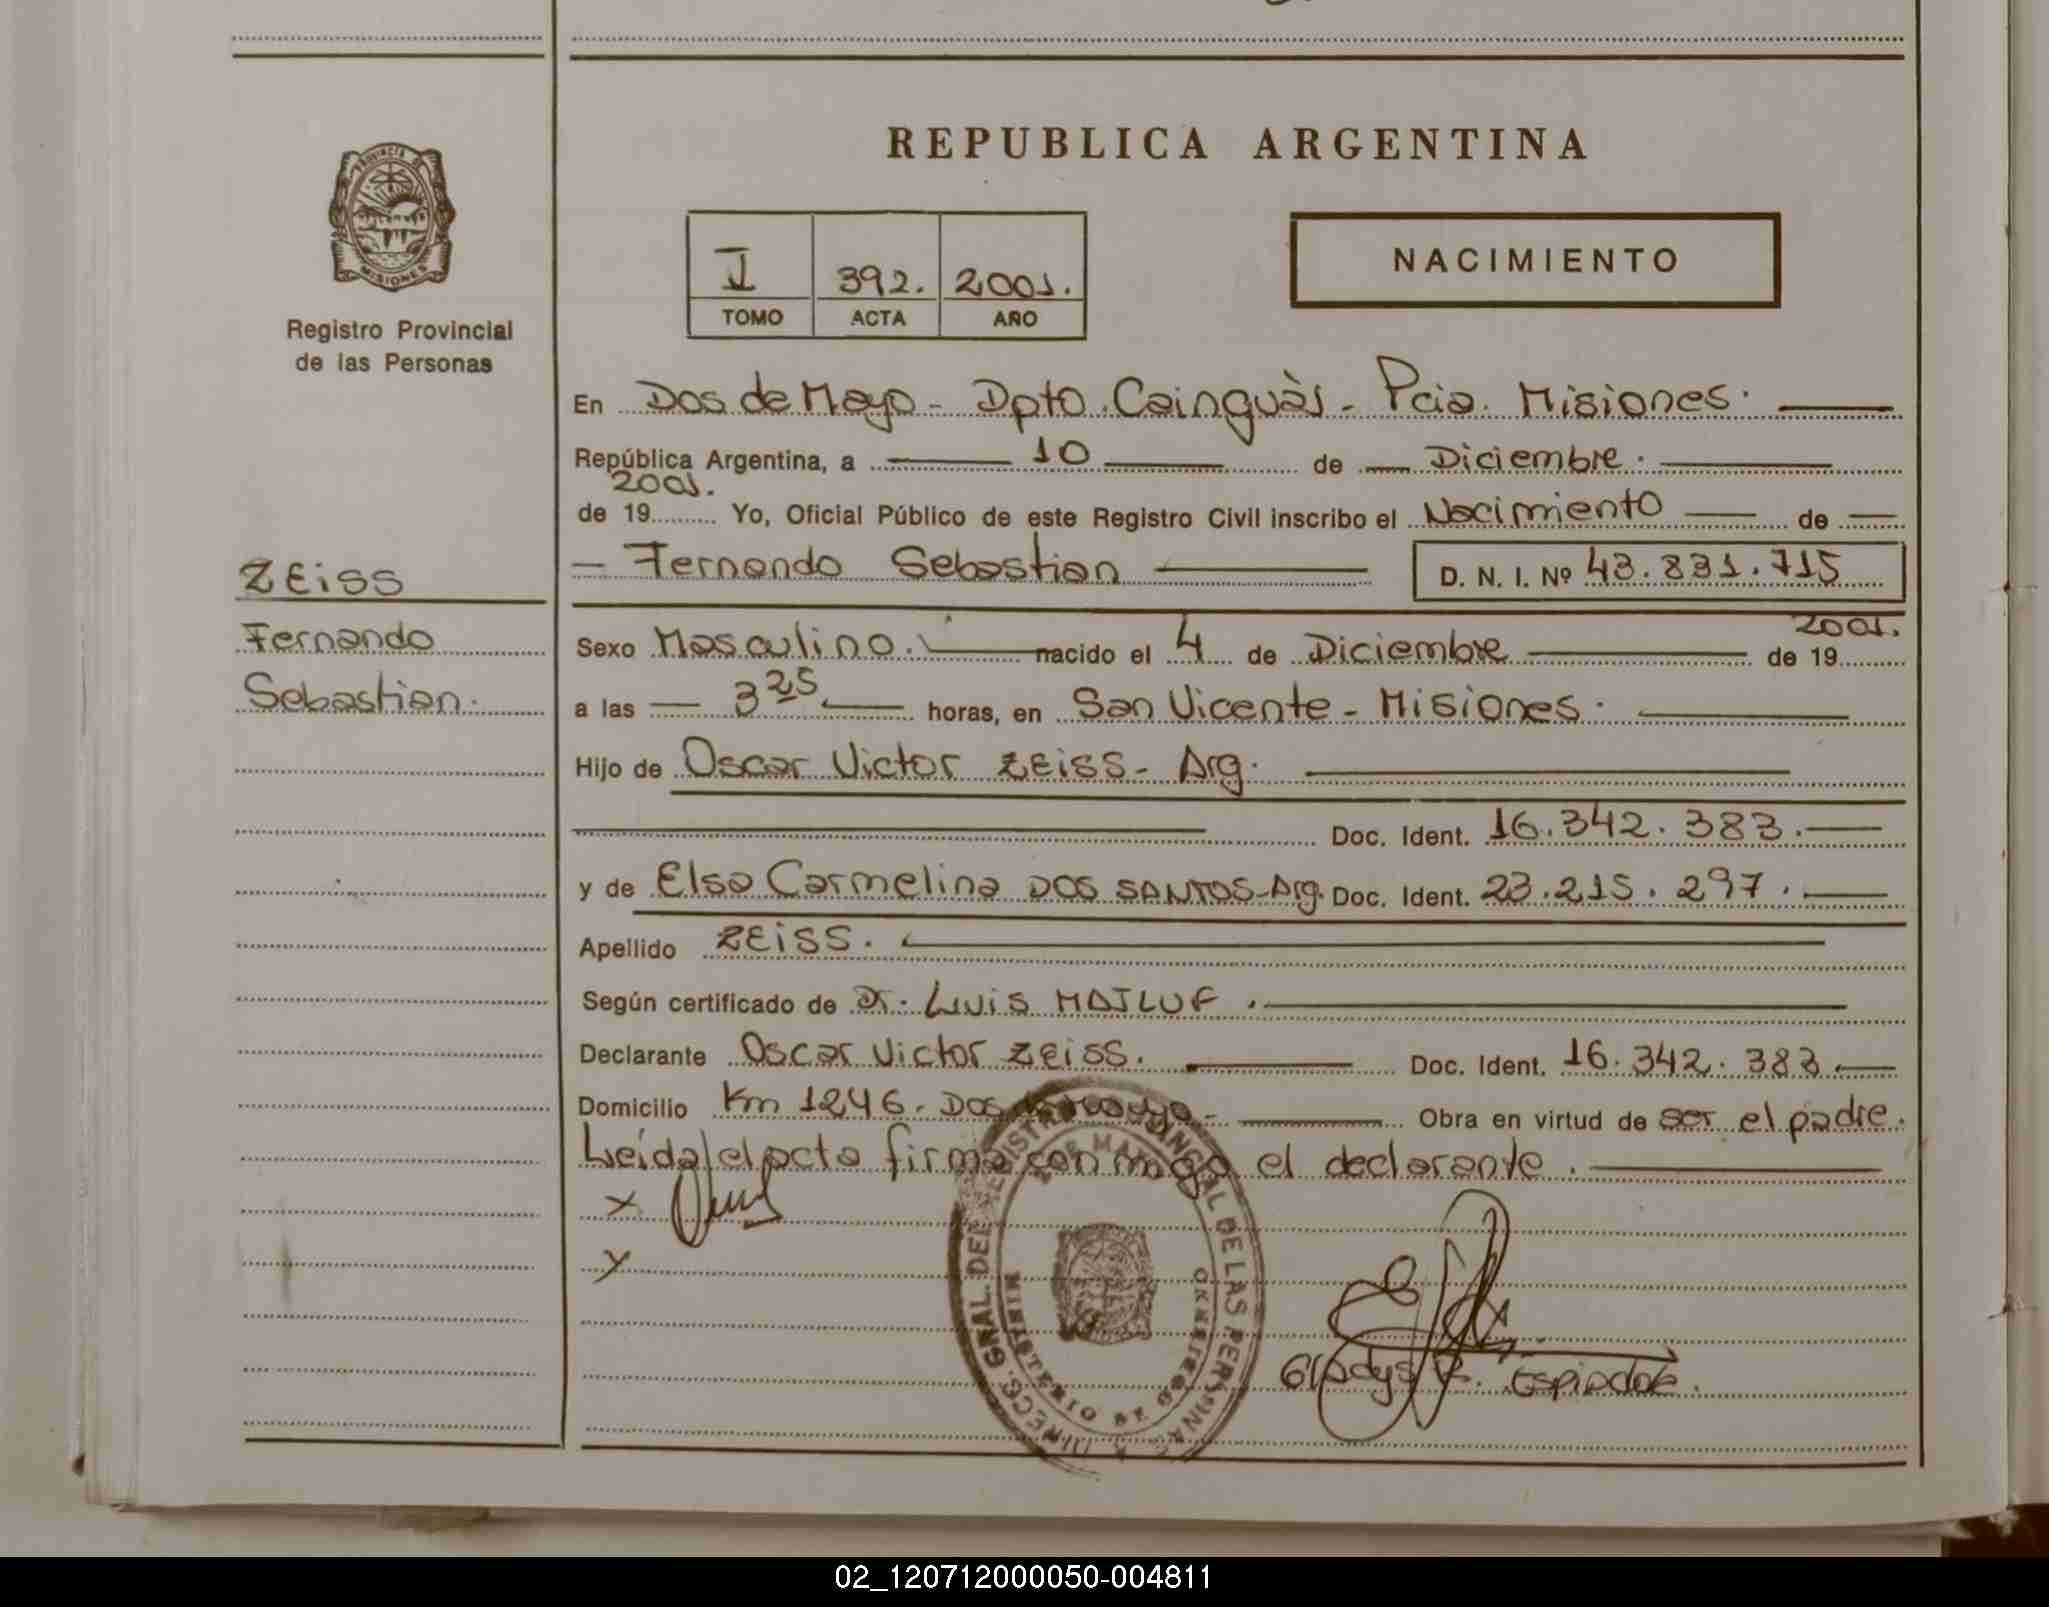 REPUBLICA ARGENTINA
PROVINCIA DE
MISIONES
Registro Provincial
de las Personas
I 392. 2001.
TOMO ACTA AÑO
NACIMIENTO
En Dos de Mayo - Dpto. Cainguàs - Pcia. Misiones.
República Argentina, a 10 de Diciembre.
2001.
de 19 Yo, Oficial Público de este Registro Civil inscribo el Nacimiento de
Fernando Sebastian D. N. I. Nº 43.831.715
ZEISS
Fernando
Sebastian.
2001.
Sexo Masculino. nacido el 4 de Diciembre de 19
a las 3 25 horas, en San Vicente - Misiones.
Hijo de Oscar Victor ZEISS - Arg.
Doc. Ident. 16.342.383.
y de Elsa Carmelina DOS SANTOS - Arg. Doc. Ident. 23.215.297.
Apellido ZEISS.
Según certificado de Dr. Luis MAJLUF.
Declarante Oscar Victor ZEISS. Doc. Ident. 16.342.383
Domicilio Km 1246 - Dos de Mayo - Obra en virtud de ser el padre.
Leída el acta firma con migo el declarante.
x
y
GRAL. DEL REGISTRO PROVINCIAL DE LAS PERSONAS
MINISTERIO DE GOBIERNO
DOS DE MAYO
Gladys
02_120712000050-004811